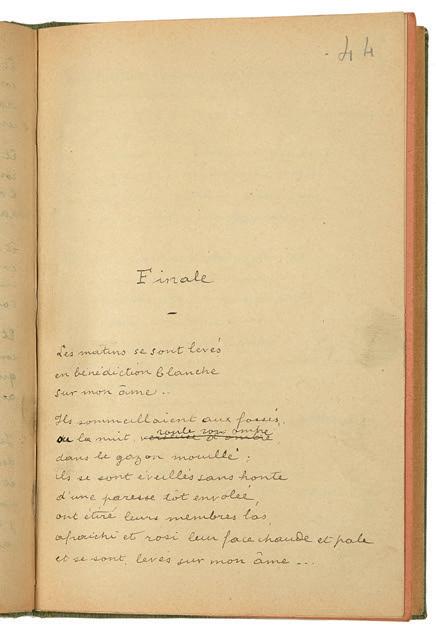 44
Finale
Les matins se sont levés
en bénédiction blanche
sur mon âme..
Ils sommeillaient aux fossés,
où la nuit, roule son ombre
dans le gazon mouillé ;
ils se sont éveillés sans honte
d'une paresse tôt envolée,
ont étiré leurs membres las,
afraichi et rosi leur face chaude et pale
et se sont levés sur mon âme ...